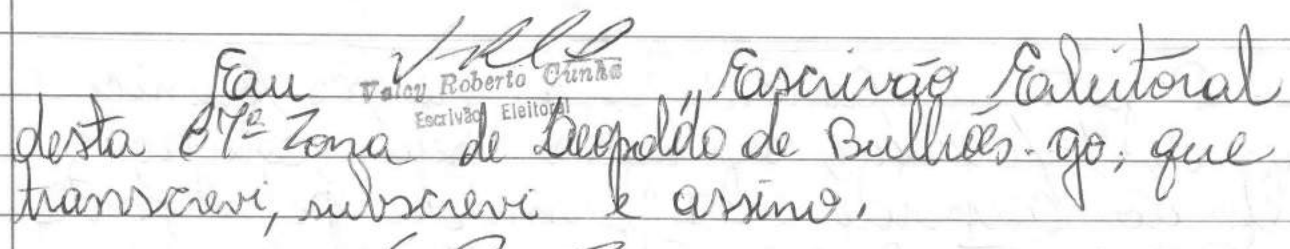 Eu Valcy Roberto Cunha Escrivão Eleitoral
Escrivão Eleitoral
desta 87ª Zona de Leopoldo de Bulhões-go, que
transcrevi, subscrevi e assino.